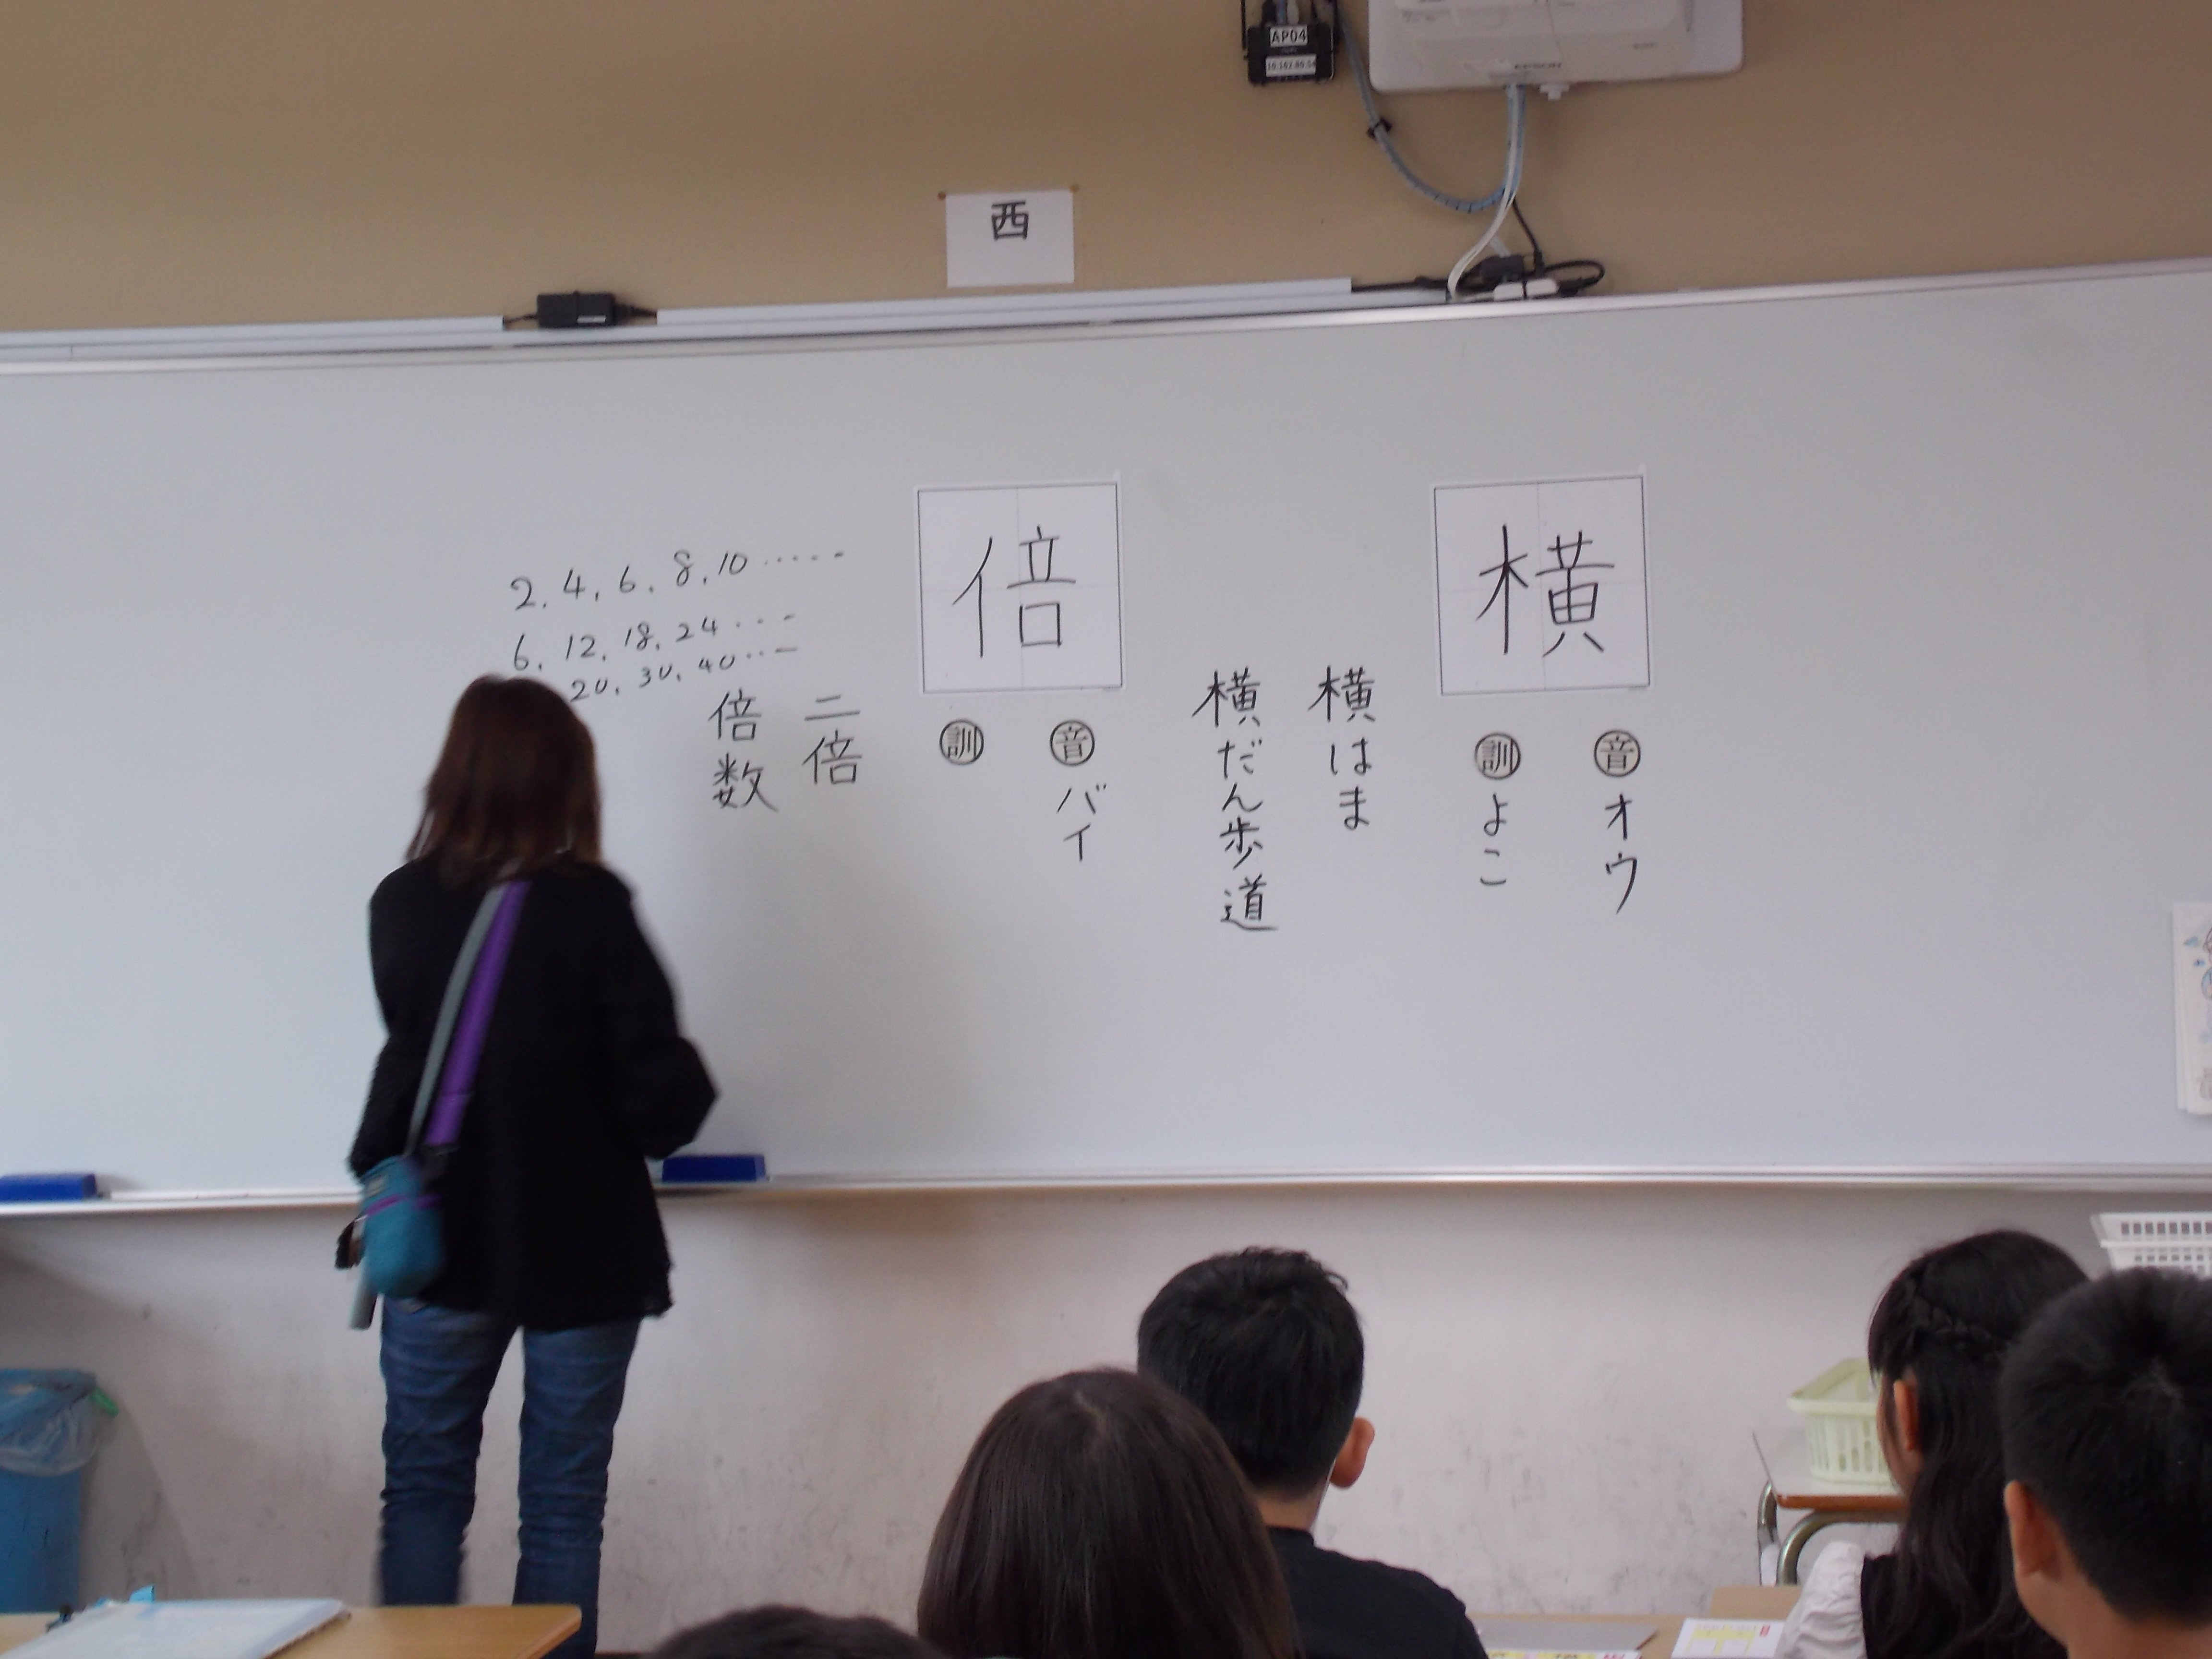 AP04
EPSON
西
横
音 オウ
訓 よこ
横はま
横だん歩道
倍
音 バイ
訓
二倍
倍数
2, 4, 6, 8, 10 ·····
6, 12, 18, 24 ····
20, 30, 40 ···